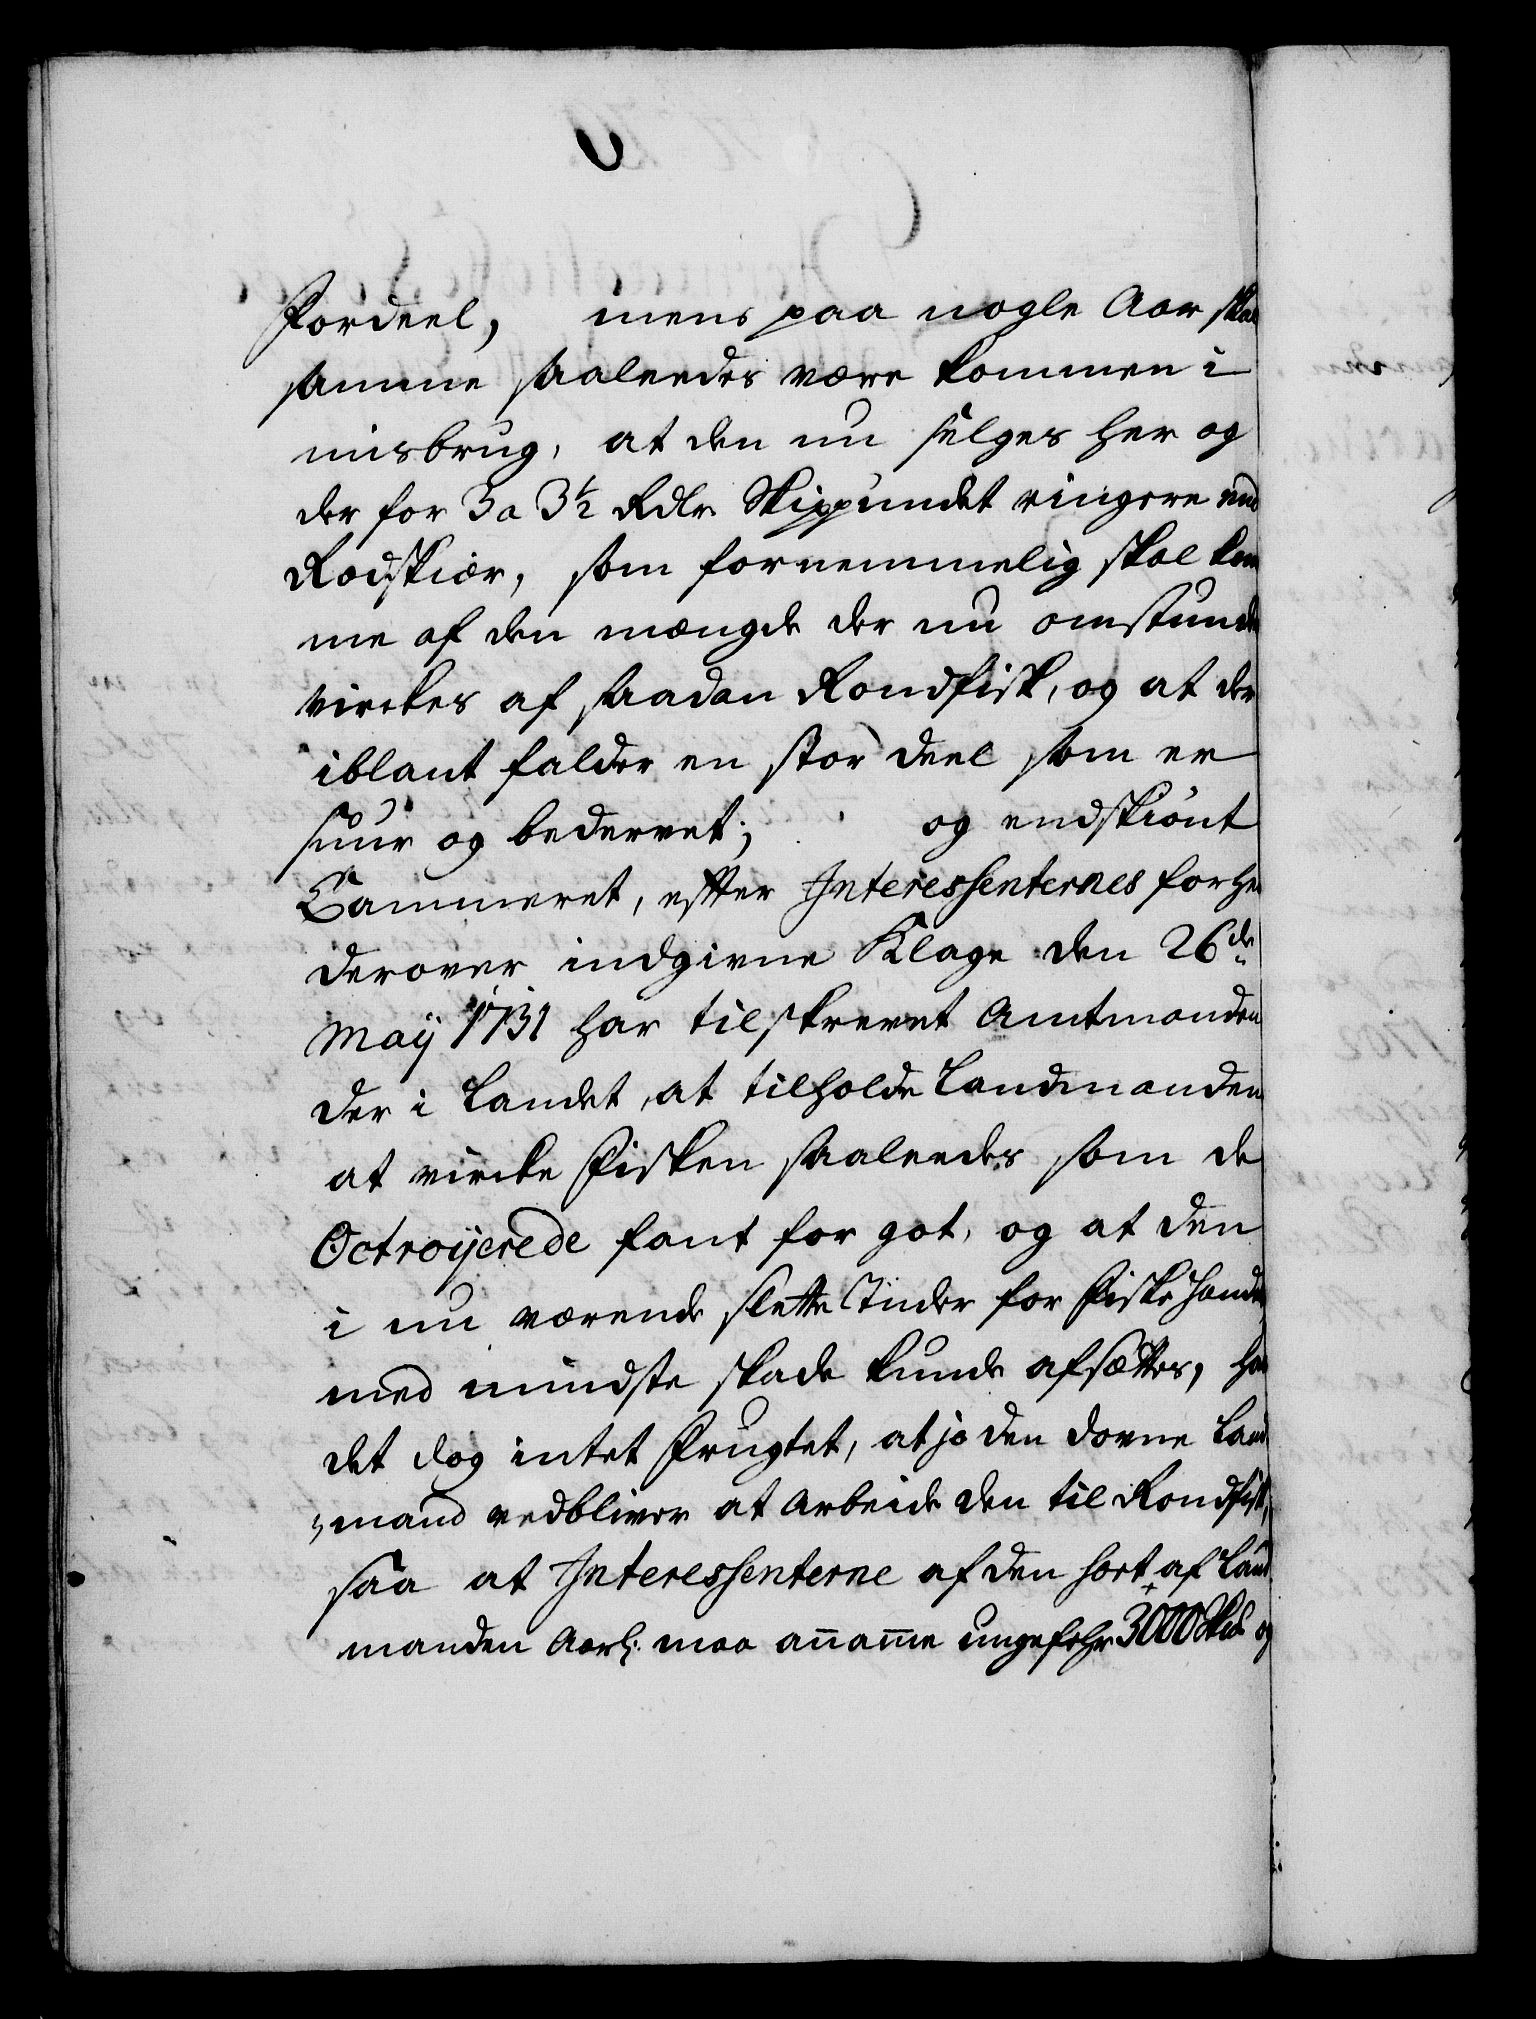 Fordeel, mens paa nogle Aar skal
samme saaleedes være kommen i
misbrug, at den nu sælges her og
der for 3 a 3½ Rdlr Skippundet ringere end
Rodskiær, som fornemmelig skal kom
me af den mængde der nu omstunde
virckes af saadan Rondfisk, og at der
iblant falder en stor deel som er
suur og bedervet; og endskiönt
Cammeret, efter Interessenternes forhen
derover indgivne Klage den 26de
Maij 1731 har tilskrevet Amtmanden
der i Landet, at tilholde Landmanden
at vircke Fisken saaleedes som de
Octroijerede fant for got, og at den
i nu værende slette Tiider for Fiske Handel
med mindste skade kunde afsættes, har
det dog intet Frugtet, at jo den dovne Land
mand vedbliver at Arbeide den til Rondfisk,
saa at Interessenterne af den sort af Land
manden Aarl: maa anamme ungefehr 3000 Skd og